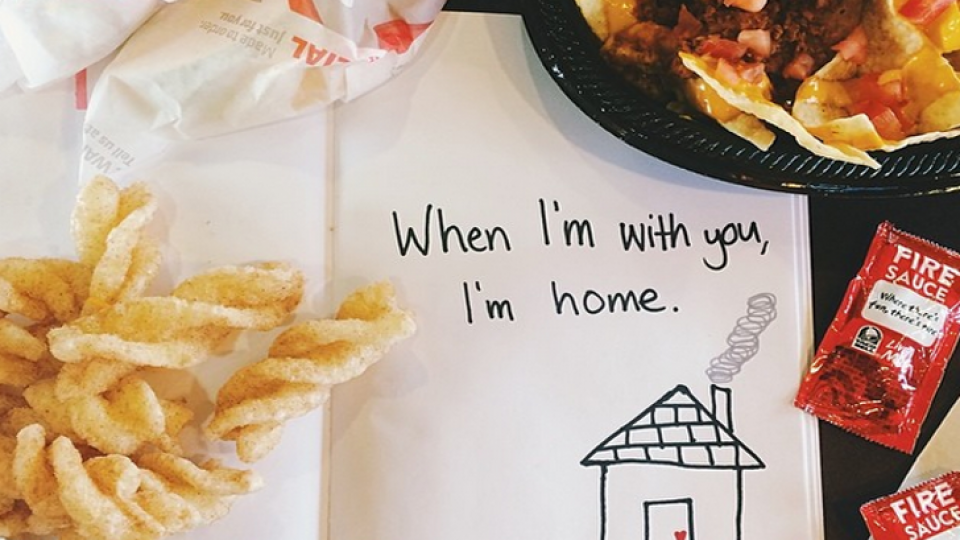 Made to order
just for you
IAL
Tell us at
When I'm with you,
I'm home.
FIRE
SAUCE
Where there's
there's fire
FIRE
SAUCE